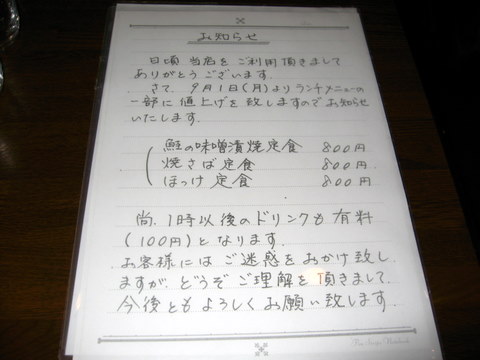 お知らせ
日頃 当店を ご利用 頂きまして
ありがとう ございます.
さて、9月1日(月)より ランチメニューの
一部に 値上げを 致しますので お知らせ
いたします.
鮭の味噌漬焼定食 800円
焼さば定食 800円
ほっけ定食 800円
尚、1時以後のドリンクも 有料
(100円)と なります.
お客様には ご迷惑を おかけ致し
ますが、どうぞ ご理解を 頂きまして、
今後とも よろしく お願い致します.